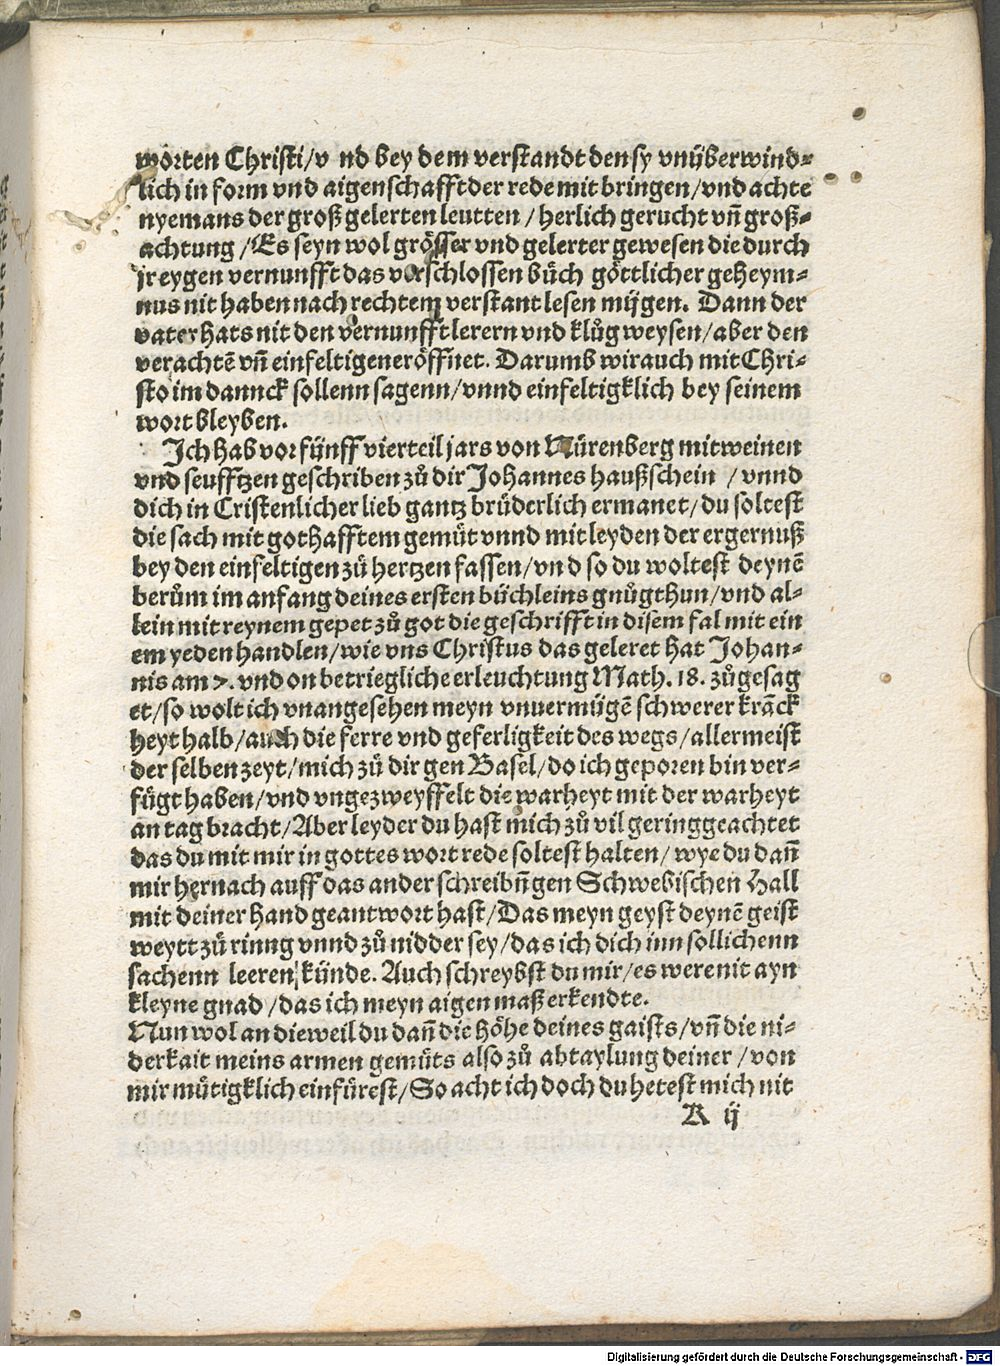 worten Christi/v nd bey dem verstandt den sy vnüberwind⸗
lich in form vnd aigenschafft der rede mit bringen/vnd achte
nyemans der groß gelerten leutten/herlich gerucht vn̄ groß⸗
achtung/Es seyn wol grösser vnd gelerter gewesen die durch
jr eygen vernunfft das verschlossen bůch göttlicher geheym⸗
nus nit haben nach rechtem verstant lesen mügen. Dann der
vater hats nit den vernunfftlerern vnd klůg weysen/aber den
verachtē vn̄ einfeltigen eröffnet. Darumb wir auch mit Chri⸗
sto im dannck sollenn sagenn/vnnd einfeltigklich bey seinem
wort bleyben.
Jch hab vor fünff vierteil jars von Nürenberg mit weinen
vnd seufftzen geschriben zů dir Johannes haußschein /vnnd
dich in Cristenlicher lieb gantz brüderlich ermanet/du soltest
die sach mit gothafftem gemüt vnnd mitleyden der ergernuß
bey den einfeltigen zů hertzen fassen/vnd so du woltest deynē
berům im anfang deines ersten büchleins gnůgthun/vnd al⸗
lein mit reynem gepet zů got die geschrifft in disem fal mit ein
em yeden handlen/wie vns Christus das geleret hat Johan⸗
nis am 7. vnd on betriegliche erleuchtung Math. 18. zůgesag
et/so wolt ich vnangesehen meyn vnuermügē schwerer krāck
heyt halb/auch die ferre vnd geferligkeit des wegs/allermeist
der selben zeyt/mich zů dir gen Basel/do ich geporen bin ver⸗
fügt haben/vnd vngezweyffelt die warheyt mit der warheyt
an tag bracht/Aber leyder du hast mich zů vil gering geachtet
das du mit mir in gottes wort rede soltest halten/wye du dan̄
mir hernach auff das ander schreibn̄ gen Schwebischen Hall
mit deiner hand geantwort hast/Das meyn geyst deynē geist
weytt zů rinng vnnd zů nidder sey/das ich dich inn sollichenn
sachenn leeren künde. Auch schreybst du mir/es were nit ayn
kleyne gnad/das ich meyn aigen maß erkendte.
Nun wol an dieweil du dan̄ die höhe deines gaists/vn̄ die ni⸗
derkait meins armen gemüts also zů abtaylung deiner/von
mir mütigklich einfürest/So acht ich doch du hetest mich nit
A ij
Digitalisierung gefördert durch die Deutsche Forschungsgemeinschaft - DFG